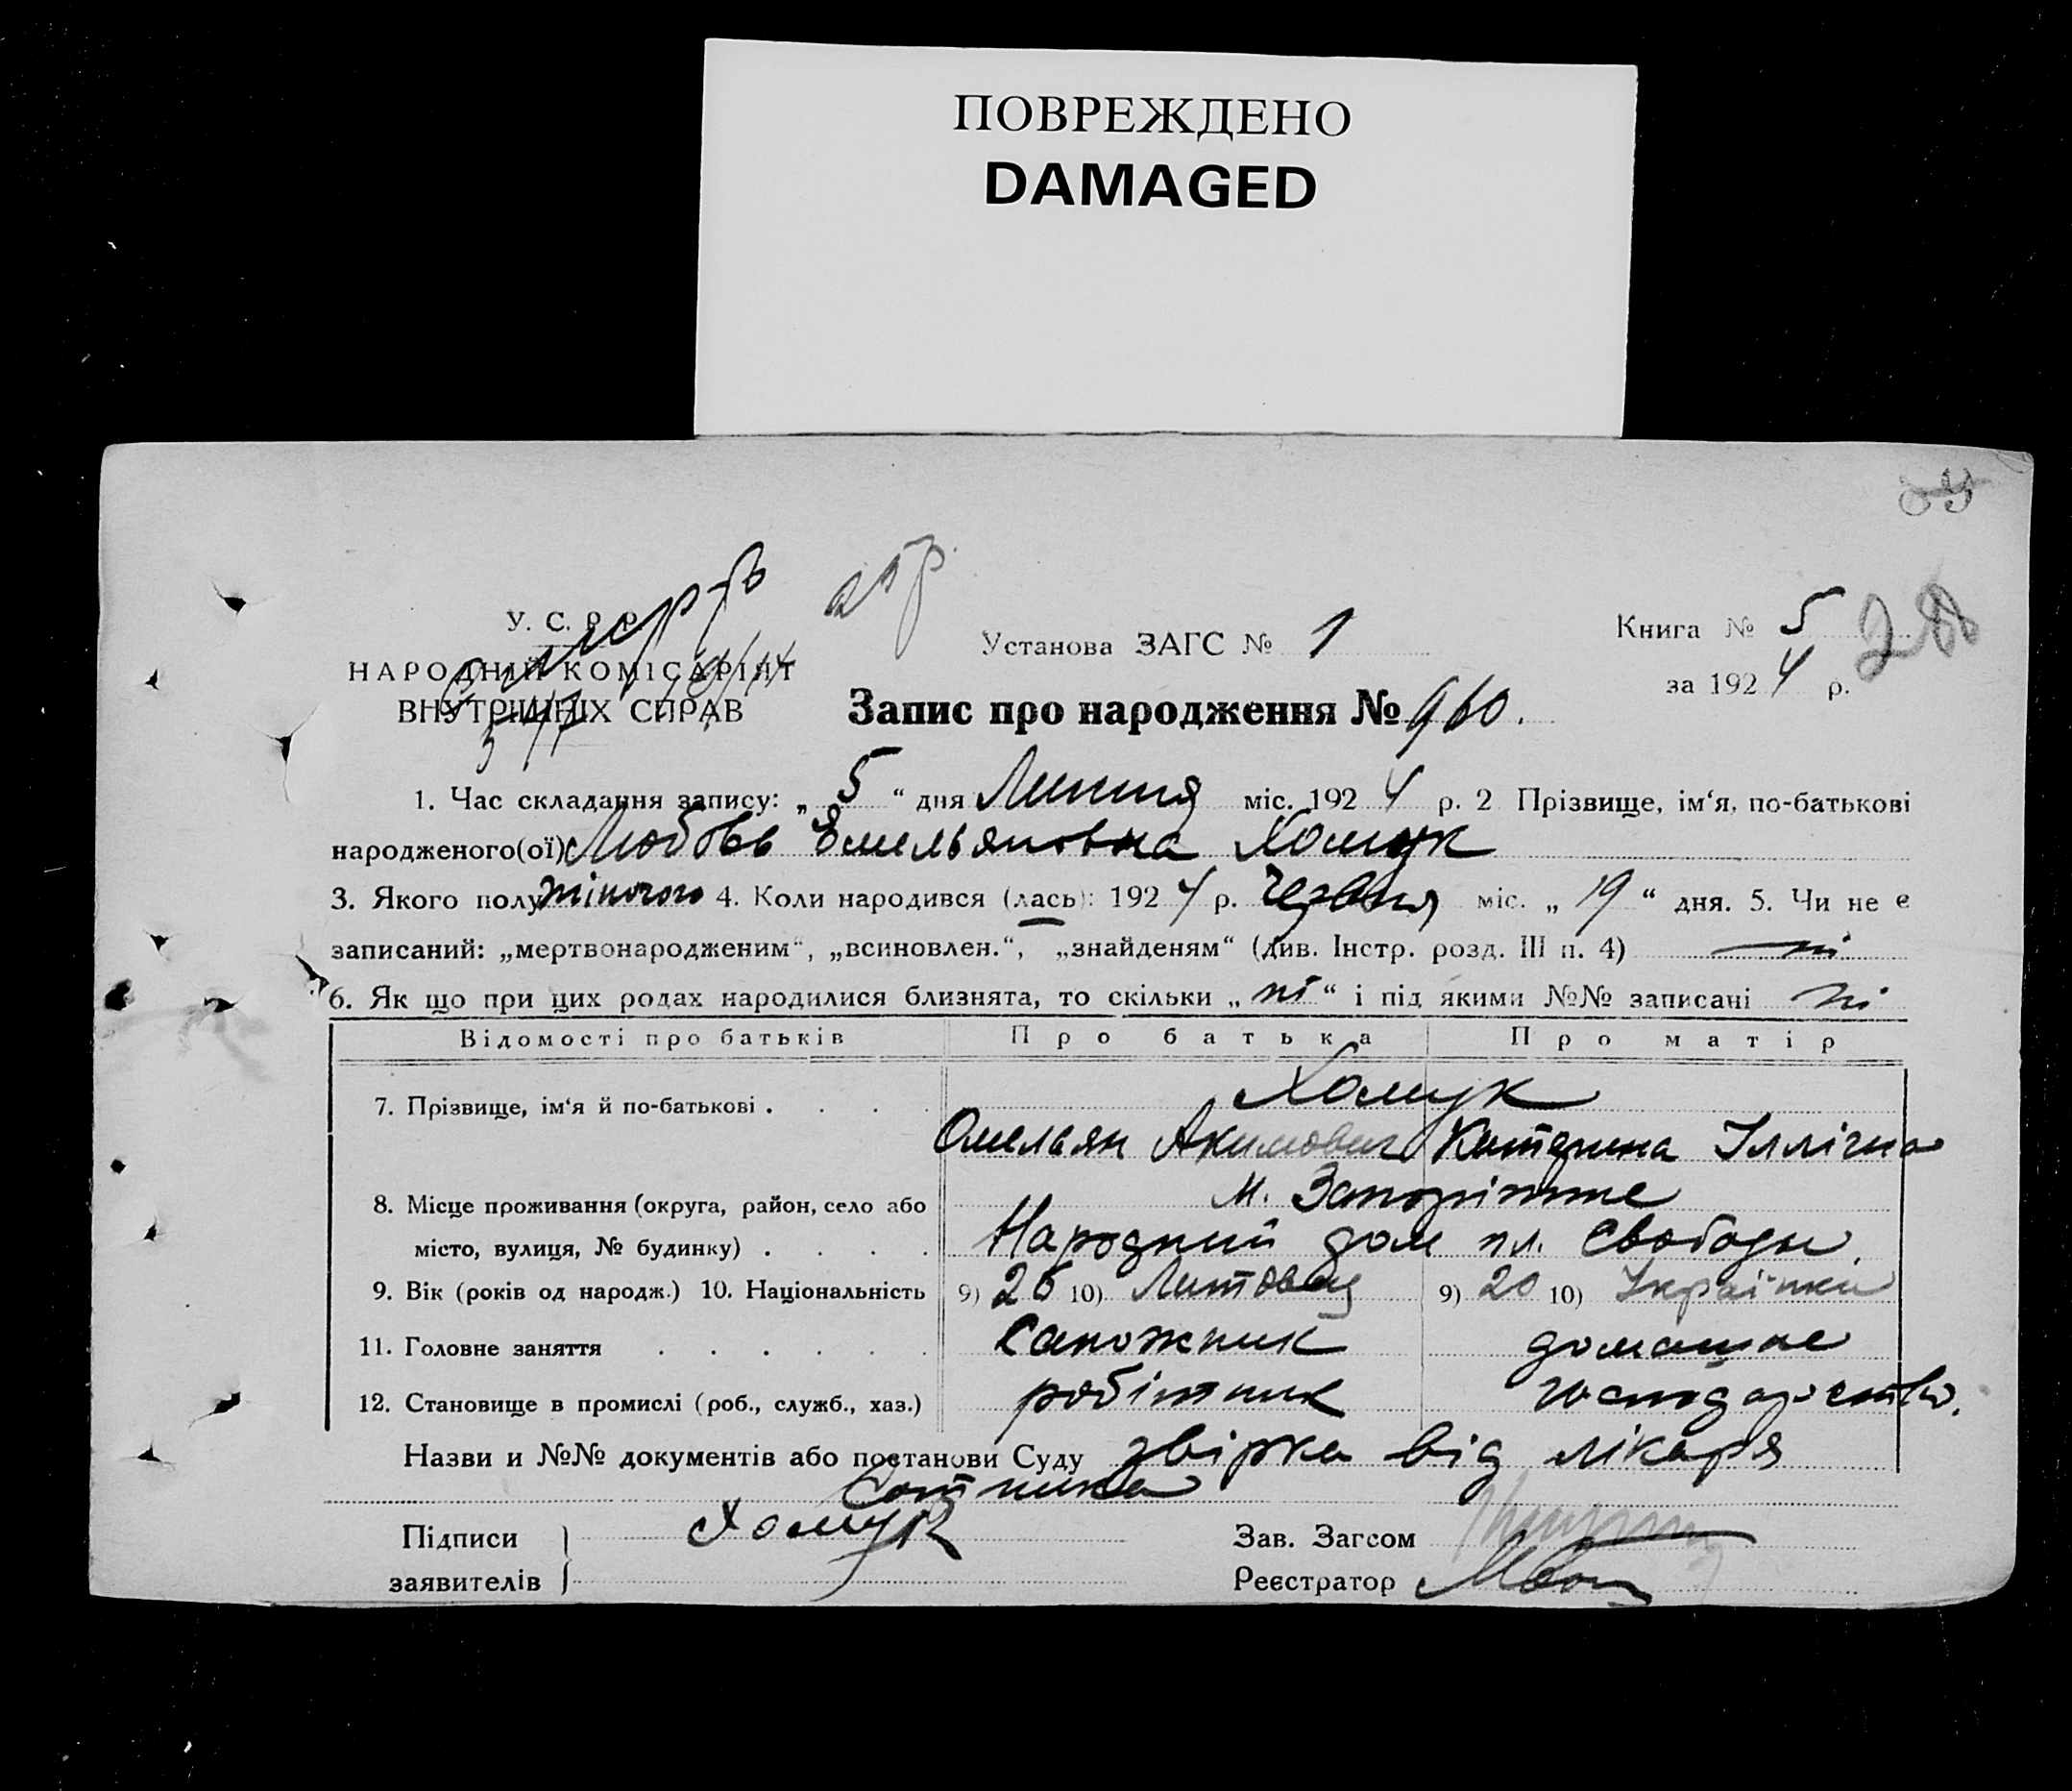 ПОВРЕЖДЕНО
DAMAGED
У. С. Р. Р.
НАРОДНІЙ КОМІСАРІЯТ
ВНУТРІШНІХ СПРАВ
Установа ЗАГС № 1
Книга № 5
за 1924 р.
Запис про народження № 960.
1. Час складання запису: „ 5 “ дня Липня міс. 1924 р. 2 Прізвище, ім‘я, по-батькові
народженого(ої) Любовь Емельяновна Хомук
3. Якого полу жіночого 4. Коли народився (лась): 1924 р. Червня міс. „ 19 “ дня. 5. Чи не є
записаний: „мертвонародженим“, „всиновлен.“, „знайденям“ (див. Інстр. розд. III п. 4) ні
6. Як що при цих родах народилися близнята, то скільки „ ні “ і під якими №№ записані ні
Відомості про батьків Про батька Про матір
Хомук
7. Прізвище, ім‘я й по-батькові . . . .
Омельян Акимович Катерина Іллічна
8. Місце проживання (округа, район, село або м. Запоріжже
місто, вулиця, № будинку) . . . . Народный дом пл. Свободы.
9. Вік (років од народж.) 10. Національність 9) 26 10) Литовец 9) 20 10) Українка
11. Головне заняття . . . . . . Сапожник домашне
12. Становище в промислі (роб., служб., хаз.) робітник господарство.
Назви и №№ документів або постанови Суду звірка від лікаря
Сотника
Підписи Хомук Зав. Загсом
заявителів Реєстратор